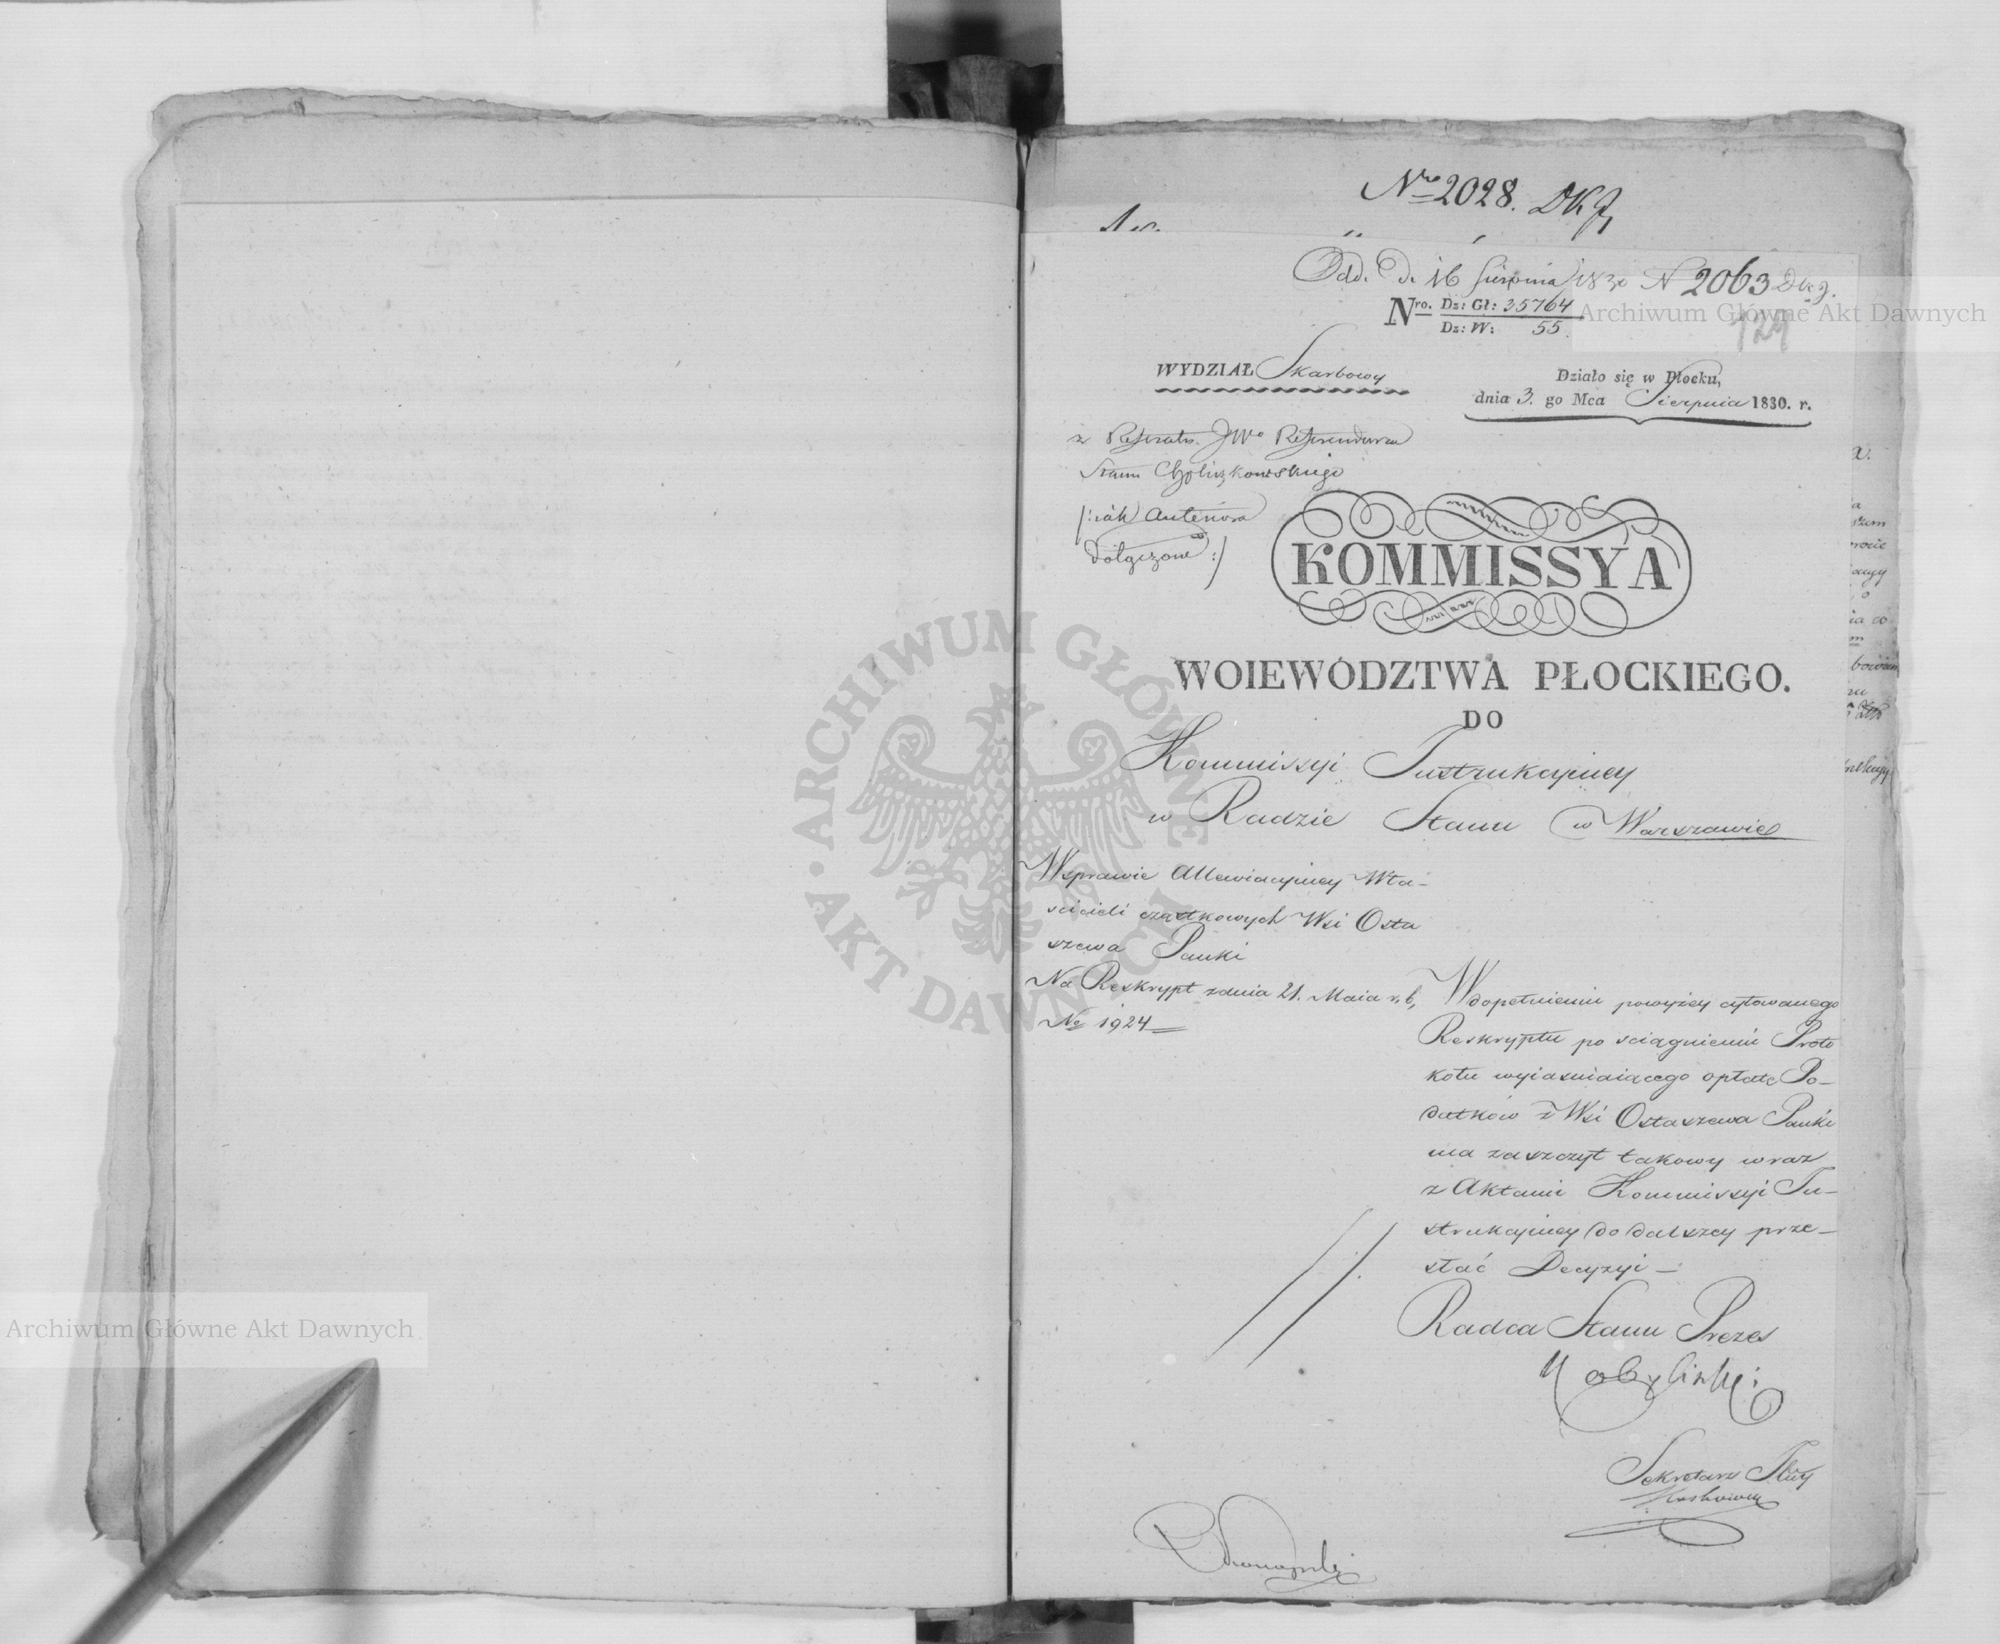 Nro 2028. DKJ
Odd. d. 16 Sierpnia 1830 N 2063 Dkj.
Nro. Dz: Gł: 35764
Dz: W: 55.
129
WYDZIAŁ Skarbowy
Działo się w Płocku,
dnia 3. go Mca Sierpnia 1830. r.
z Referatu JWo Referendarza
Stanu
/: iak Anteriora
dołączone :/
KOMMISSYA
WOIEWÓDZTWA PŁOCKIEGO.
DO
Kommissyi Instrukcyiney
w Radzie Stanu w Warszawie
W sprawie Allewiacyiney Wła-
scicieli cząstkowych Wsi Osta
szewa Pańki
Na Reskrypt z dnia 21. Maia r. b,
No 1924
W dopełnieniu powyżey cytowanego
Reskryptu po sciągnieniu Proto
kołu wyiasniaiącego opłatę Po-
datków z Wsi Ostaszewa Pańki
ma zaszczyt takowy wraz
z Aktami Kommissyi In-
strukcyiney do dalszey prze-
słać Decyzyi
Radca Stanu Prezes
Kobyliński
Sekretarz Jlny
Archiwum Główne Akt Dawnych
Archiwum Główne Akt Dawnych
ARCHIWUM GŁÓWNE AKT DAWNYCH